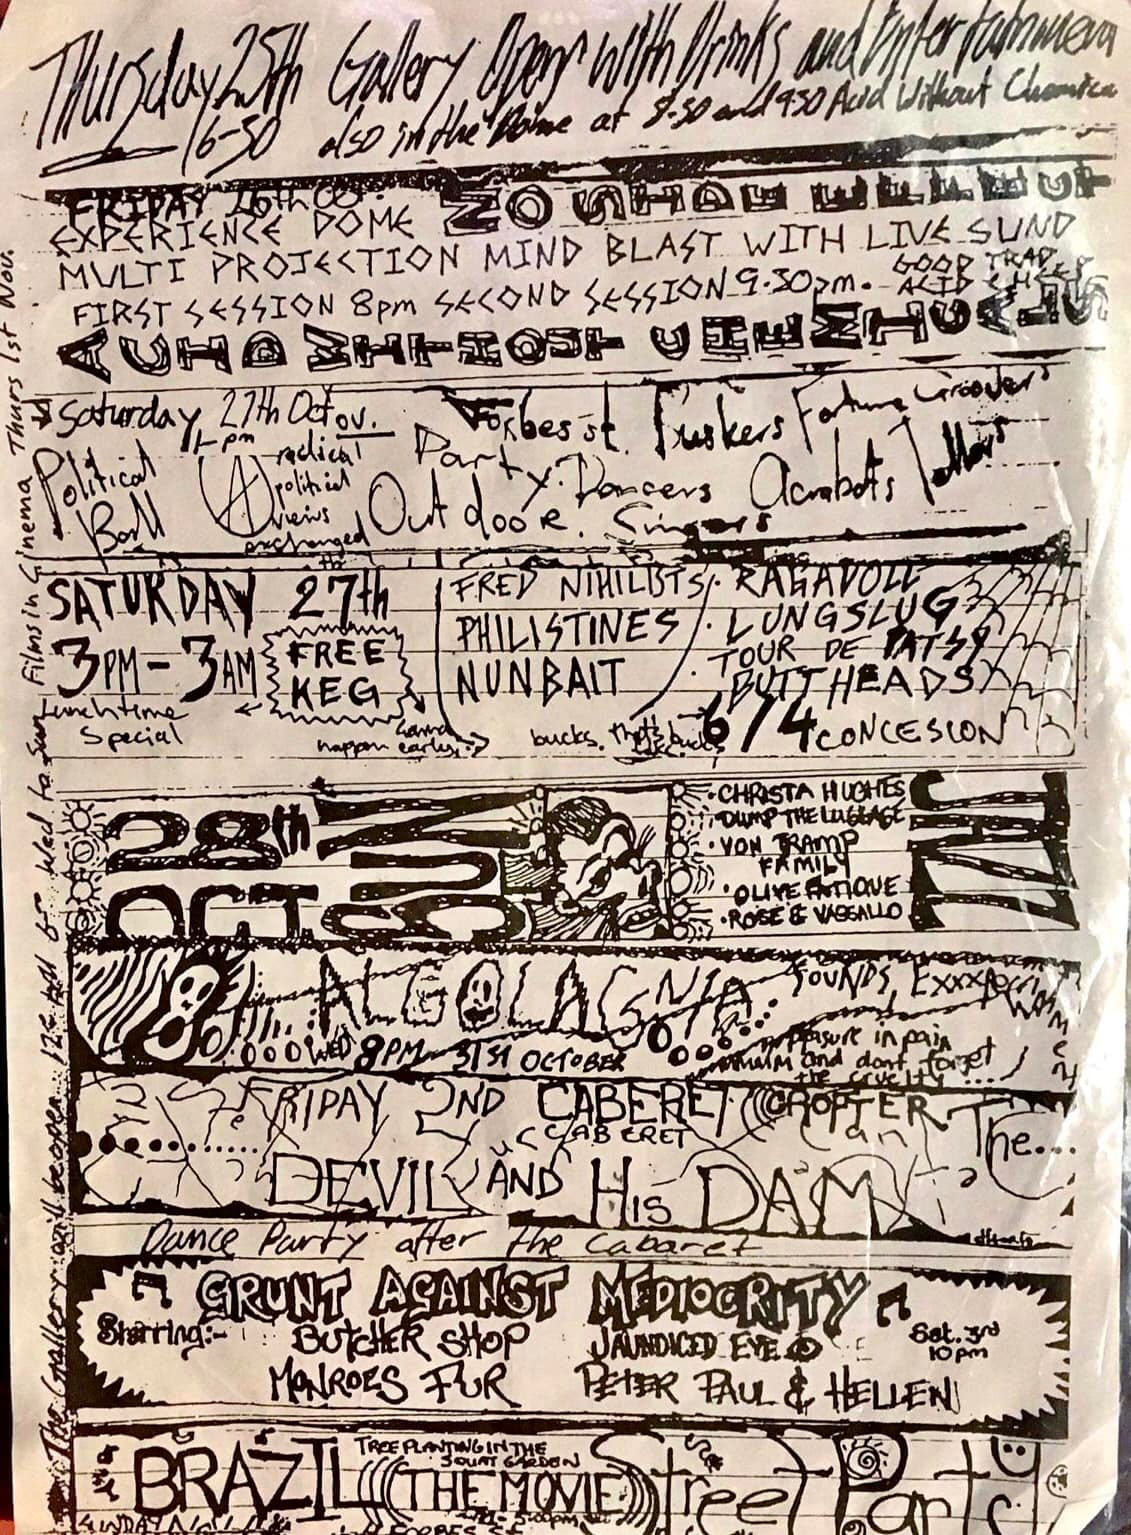 Thursday 25th Gallery Opens With Drinks and Entertainment
6-30 also in the Dome at 8-30 and 930 Acid Without Chemica
FRIDAY 26th Oct. NO SHDE EFFECT
EXPERIENCE DOME
MULTI PROJECTION MIND BLAST WITH LIVE SUND
FIRST SESSION 8pm SECOND SESSION 9.30pm. GOOD TRAD
ACID CHEER
ACID WITHOUT CHEMICALS
Saturday 27th Oct
1-pm
Political Ball
radical political views exchanged
Forbes st. Party. Out door.
Buskers Fortune Tellers
Dancers Acrobats
Singers
SATURDAY 27th
3PM - 3AM
FREE KEG
Lunchtime Special
happen early
FRED NIHILISTS
PHILISTINES
NUNBAIT
RAGADOLL
LUNGSLUG
TOUR DE PATSY
BUTTHEADS
bucks. that's
6/4 CONCESION
28th OCT SUN
CHRISTA HUGHES
DUMP THE LUGGAGE
VON TRAMP FAMILY
OLIVE FATIQUE
ROSE & VASSALLO
JAZZ
ALGOLAGNIA
SOUNDS
WED 8PM 31ST OCTOBER
pleasure in pain
and dont forget
the cruelty...
FRIDAY 2ND CABERET CROFTER
CABERET
The...
DEVIL AND His DAM
Dance Party after the Cabaret
GRUNT AGAINST MEDIOCRITY
Starring:-
BUTCHER SHOP
JAUNDICED EYE
Sat. 3rd
10pm
MONROES FUR
PETER PAUL & HELLEN
BRAZIL
TREE PLANTING IN THE
SQUAT GARDEN
(((THE MOVIE)))
Street Party
SUNDAY
FORBES ST
The Gallery will be open
to Sun
Films in Cinema Thurs 1st Nov.